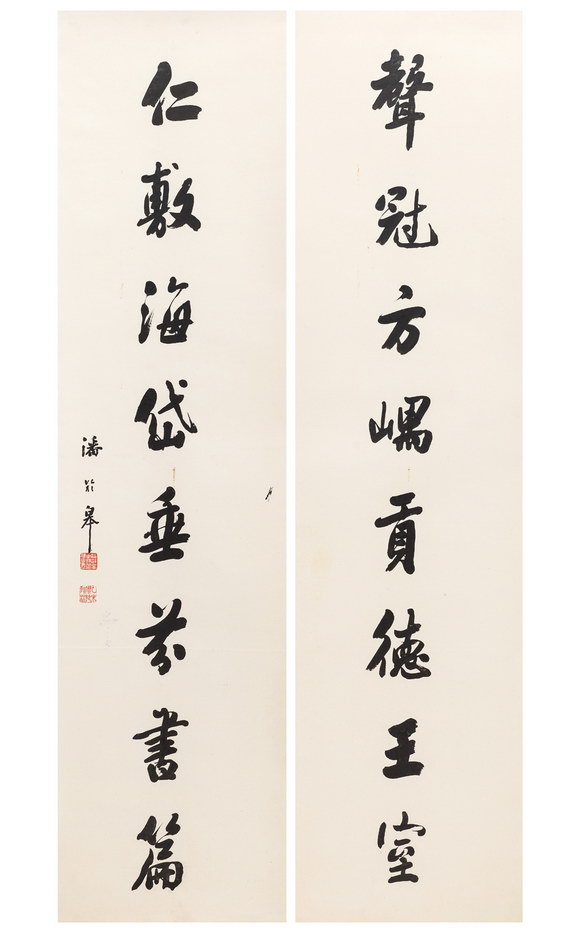 聲冠方嵎貢德王室
仁敷海岱垂芬書篇
潘齡皋